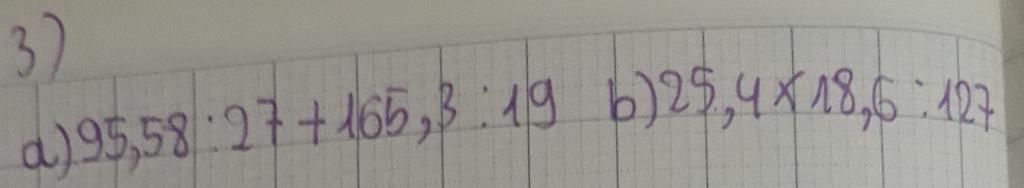 3)
a) 95,58 : 27 + 165,3 : 19 b) 25,4 x 18,6 : 127